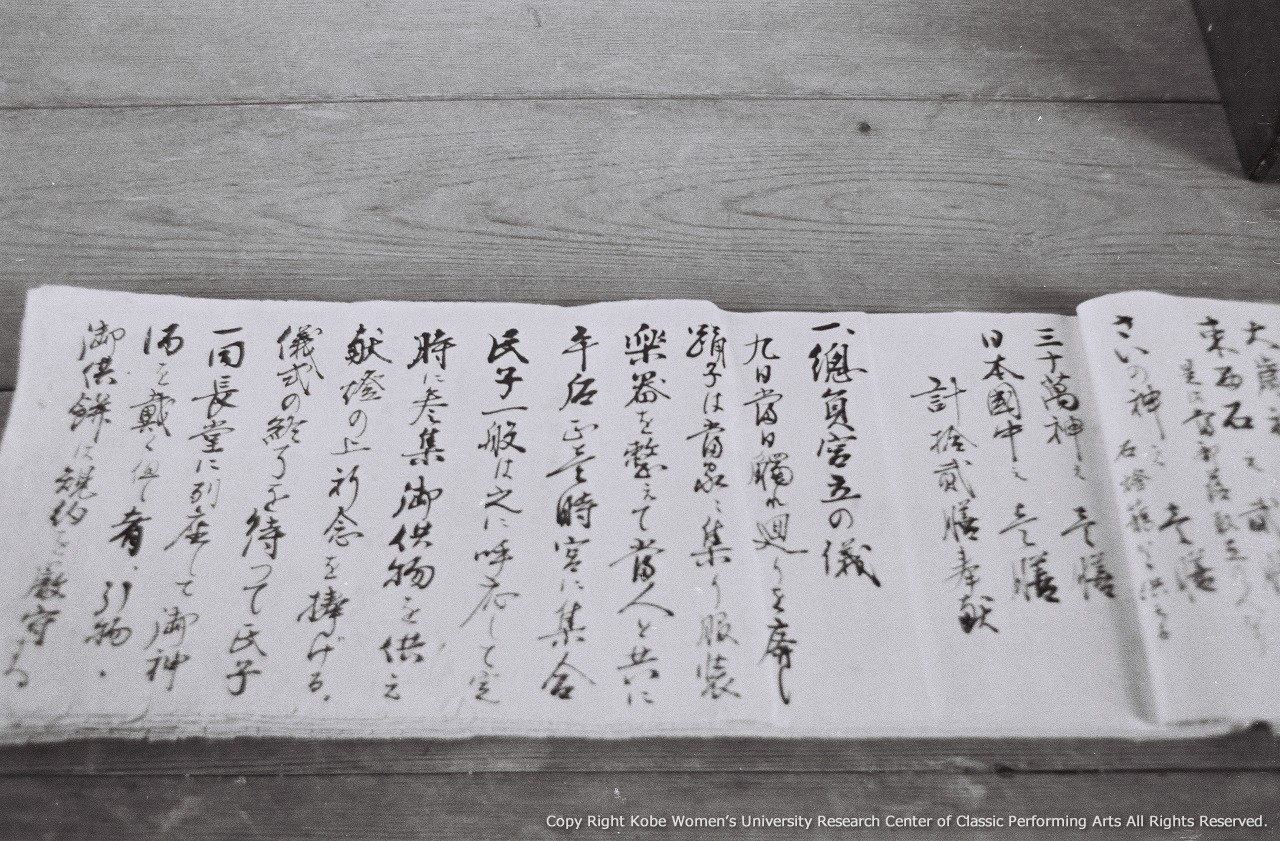 大歳神え貳膳
東西石え壱膳
さいの神え
三十萬神え壱膳
日本國中え壱膳
計拾貳膳奉献
一、總員宮立の儀
九日當日觸れ廻りを廃し
頴子は當家に集り服装
楽器を整えて當人と共に
午后正壱時宮に集合
民子一般は之に呼応して定
時に参集御供物を供え
献燈の上祈念を捧げる。
儀式の終了を待って氏子
一同長堂に列座して御神
酒を戴く但し肴、引物、
御供餅は規約を厳守する
Copy Right Kobe Women's University Research Center of Classic Performing Arts All Rights Reserved.